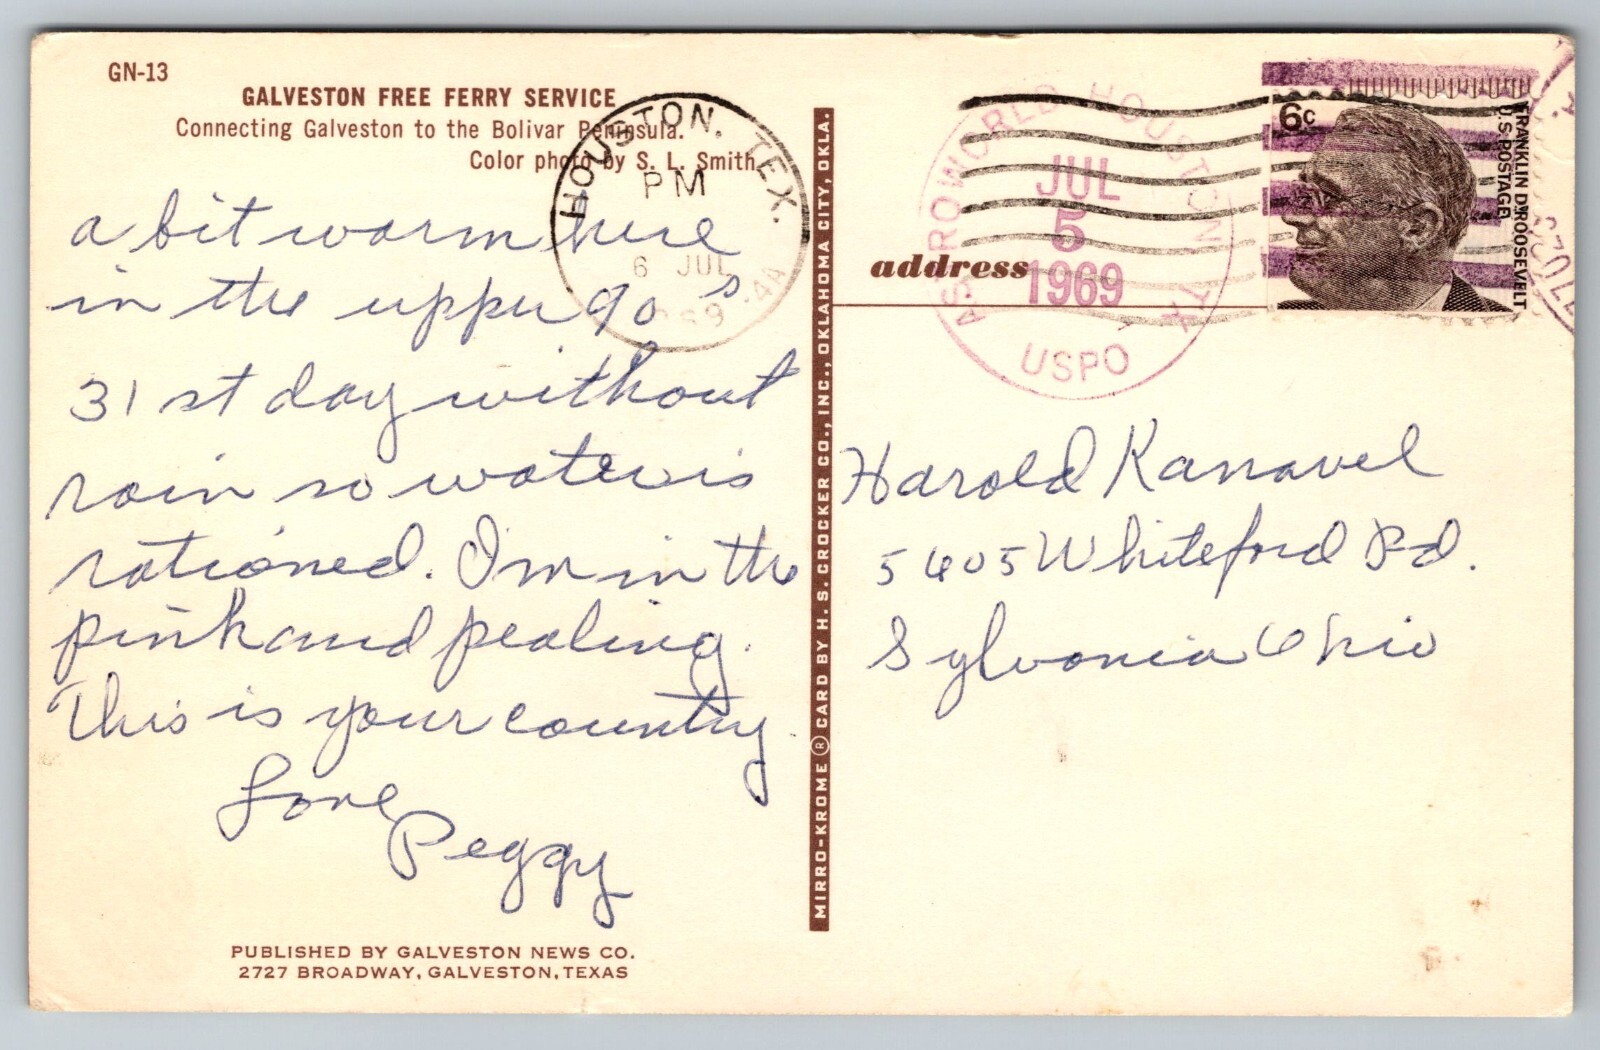 GN-13
GALVESTON FREE FERRY SERVICE
Connecting Galveston to the Bolivar Peninsula.
Color photo by S. L. Smith
HOUSTON, TEX.
PM
6 JUL
a bit warm here
in the upper 90's
31 st day without
rain so water is
rationed. I'm in the
pink and pealing.
This is your country.
Love
Peggy
PUBLISHED BY GALVESTON NEWS CO.
2727 BROADWAY, GALVESTON, TEXAS
MIRRO-KROME ® CARD BY H. S. CROCKER CO., INC., OKLAHOMA CITY, OKLA.
ASTROWORLD HOUSTON TX
JUL
5
1969
USPO
6c
FRANKLIN D. ROOSEVELT
U.S. POSTAGE
address
Harold Kanavel
5605 Whiteford Rd.
Sylvania Ohio